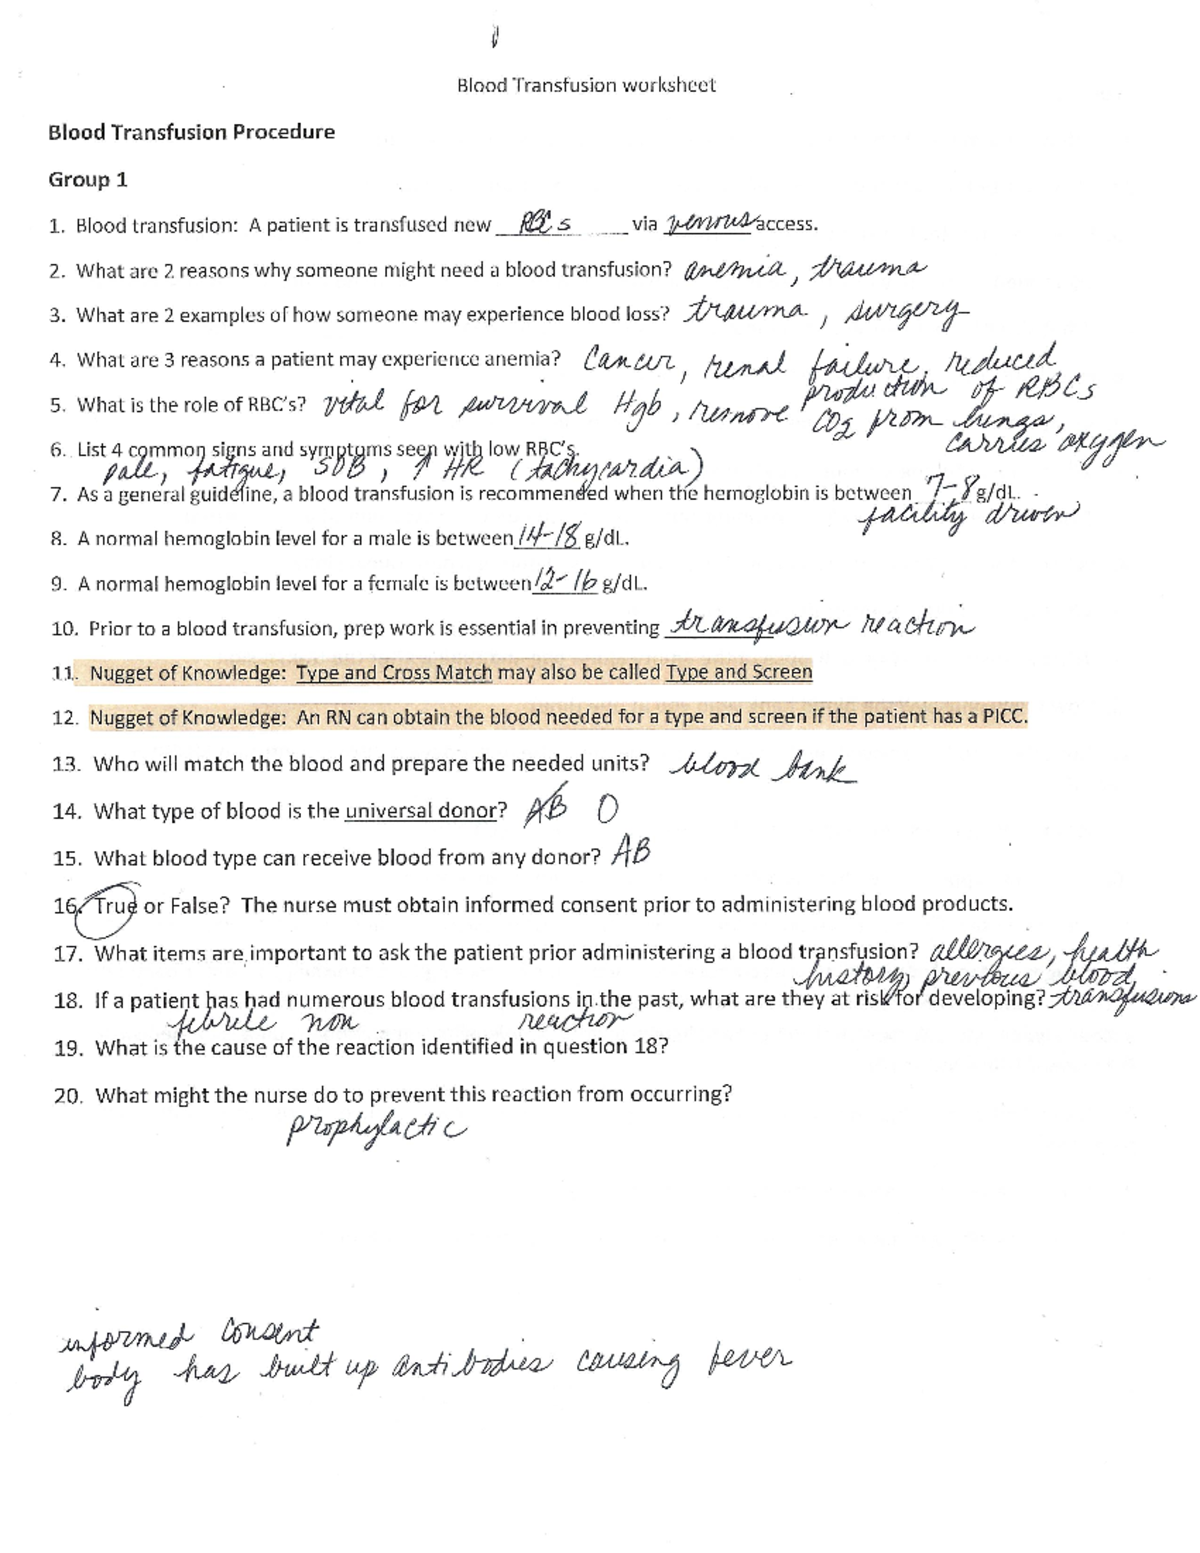 Blood Transfusion worksheet
Blood Transfusion Procedure
Group 1
1. Blood transfusion: A patient is transfused new RBCs via venous access.
2. What are 2 reasons why someone might need a blood transfusion? anemia, trauma
3. What are 2 examples of how someone may experience blood loss? trauma, surgery
4. What are 3 reasons a patient may experience anemia? Cancer, renal failure, reduced
production of RBCs
5. What is the role of RBC's? vital for survival Hgb, remove CO2 from lungs,
carries oxygen
6. List 4 common signs and symptoms seen with low RBC's.
pale, fatigue, SOB, ↑ HR (tachycardia)
7. As a general guideline, a blood transfusion is recommended when the hemoglobin is between 7-8 g/dL.
facility driven
8. A normal hemoglobin level for a male is between 14-18 g/dL.
9. A normal hemoglobin level for a female is between 12-16 g/dL.
10. Prior to a blood transfusion, prep work is essential in preventing transfusion reaction
11. Nugget of Knowledge: Type and Cross Match may also be called Type and Screen
12. Nugget of Knowledge: An RN can obtain the blood needed for a type and screen if the patient has a PICC.
13. Who will match the blood and prepare the needed units? blood bank
14. What type of blood is the universal donor? AB O
15. What blood type can receive blood from any donor? AB
16. True or False? The nurse must obtain informed consent prior to administering blood products.
17. What items are important to ask the patient prior administering a blood transfusion? allergies, health
history, previous blood
18. If a patient has had numerous blood transfusions in the past, what are they at risk for developing? transfusions
febrile non reaction
19. What is the cause of the reaction identified in question 18?
20. What might the nurse do to prevent this reaction from occurring?
prophylactic
informed consent
body has built up antibodies causing fever